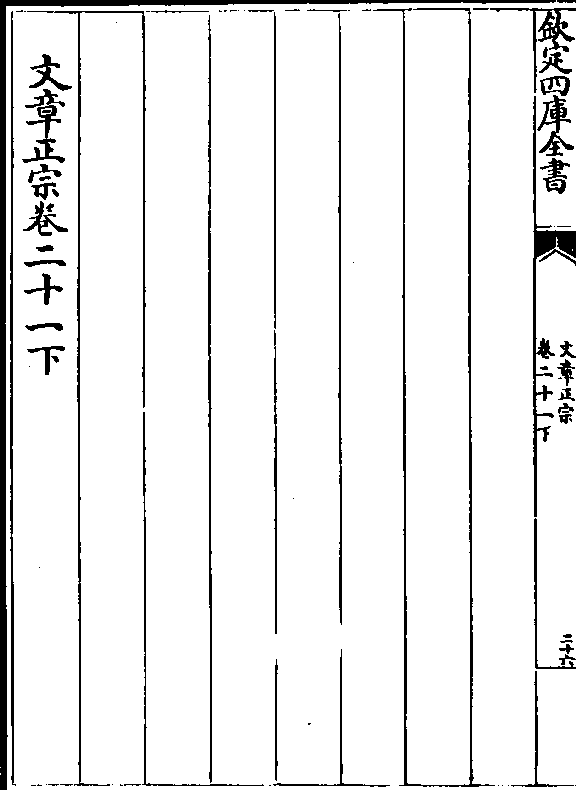 欽定四庫全書
文章正宗
卷二十一下
二十六
文章正宗卷二十一下